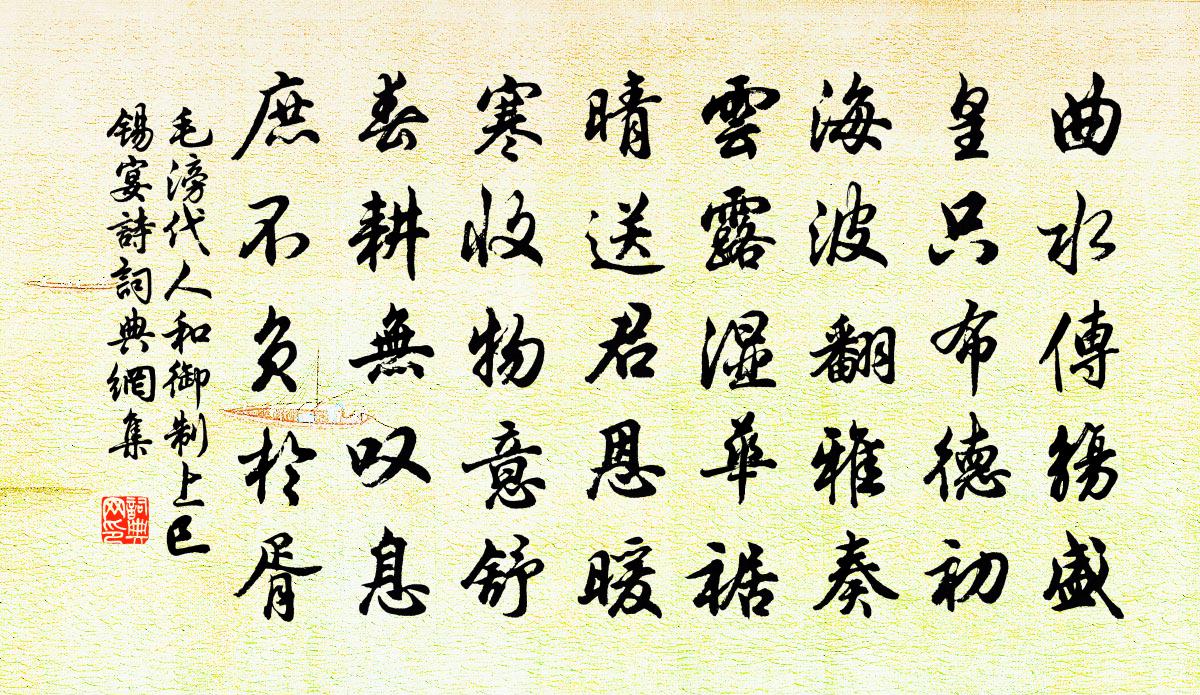 曲水傳觴盛
皇只布德初
海波翻雅奏
雲露湿華裾
晴送君恩暖
寒收物意舒
春耕無叹息
庶不負於胥
毛滂代人和御制上巳
錫宴詩詞典網集
詞典
网印